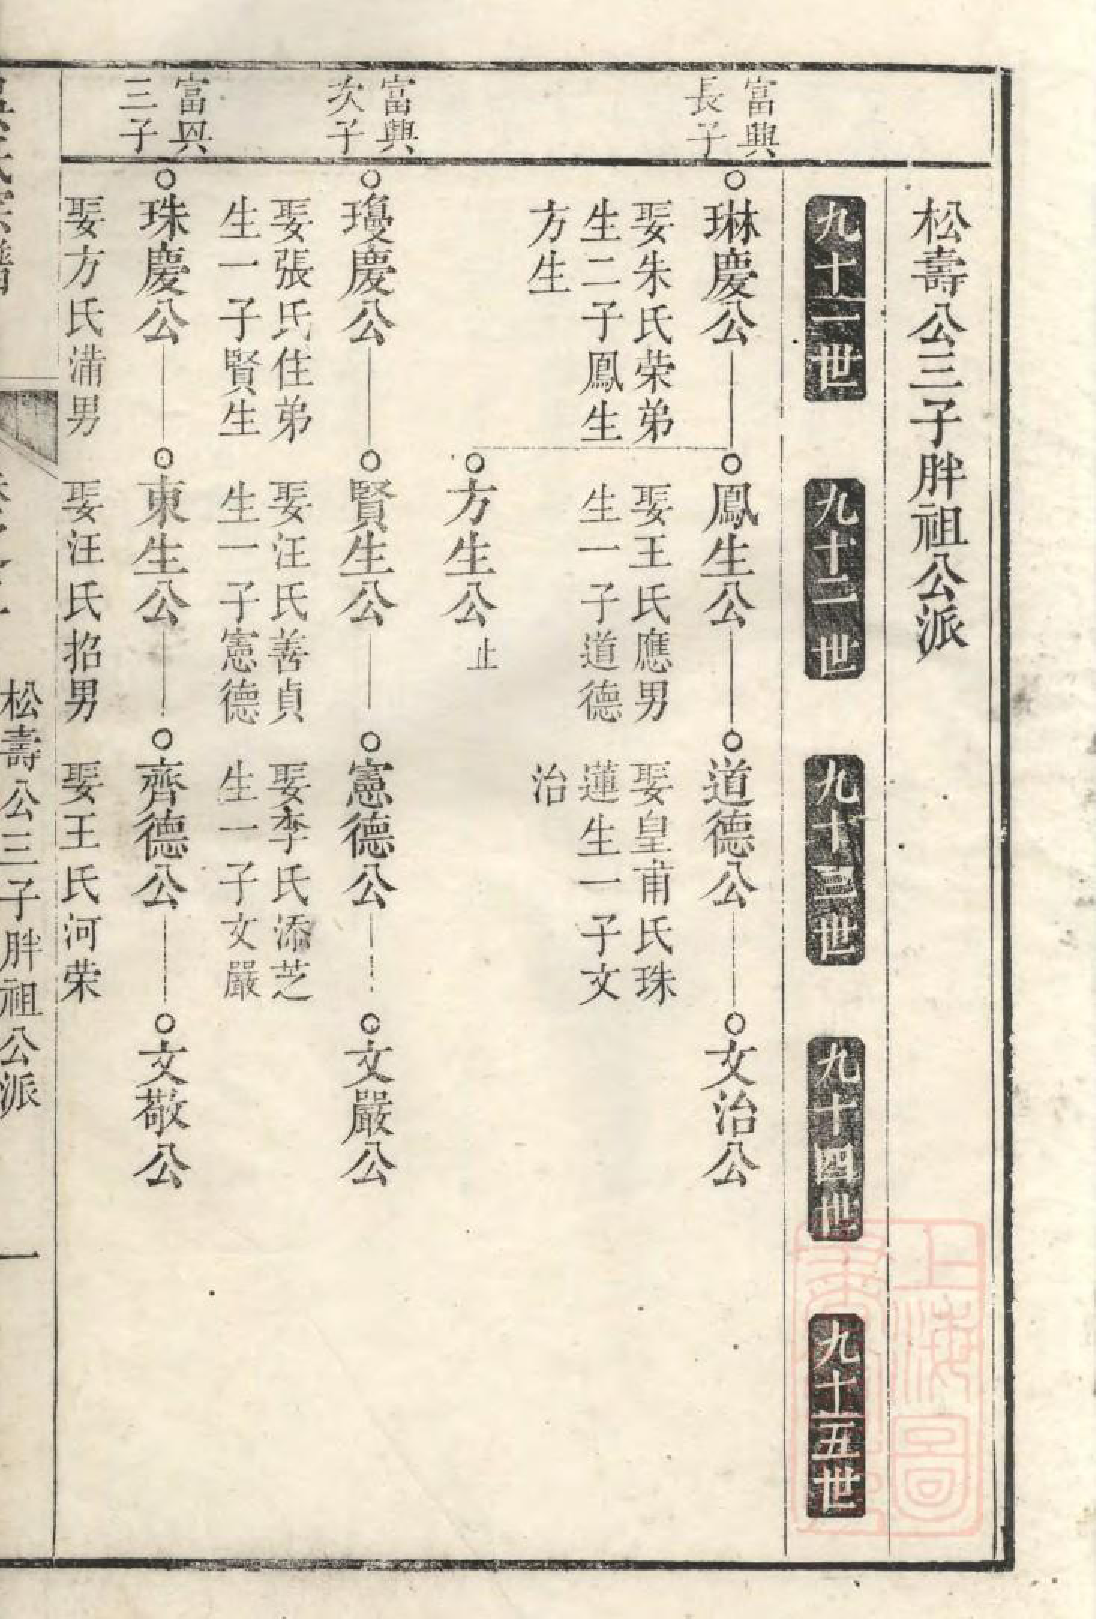 松壽公三子胖祖公派
九十一世
九十二世
九十三世
九十四世
九十五世
富興
長子
琳慶公
娶朱氏荣弟
生二子鳳生
方生
鳳生公
娶王氏應男
生一子道德
道德公
娶皇甫氏珠
蓮生一子文
治
文治公
方生公止
富興
次子
瓊慶公
娶張氏住弟
生一子賢生
賢生公
娶汪氏善貞
生一子憲德
憲德公
娶李氏添芝
生一子文嚴
文嚴公
富興
三子
珠慶公
娶方氏滿男
東生公
娶汪氏招男
齊德公
娶王氏河荣
文敬公
松壽公三子胖祖公派
一
上海圖